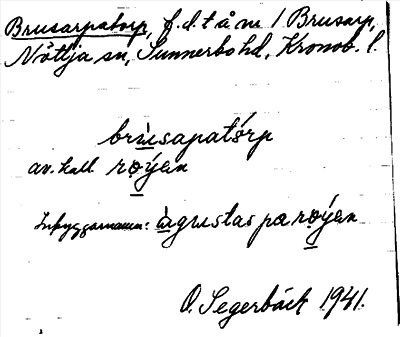 Brusarpatorp, f.d.t å m 1 Brusarp,
Nöttja sn, Sunnerbo hd, Kronob. l.
brùsapatórp
av. kall røýen
Inbyggarnamn: àgustas pa røýen
O. Segerbäck 1941.